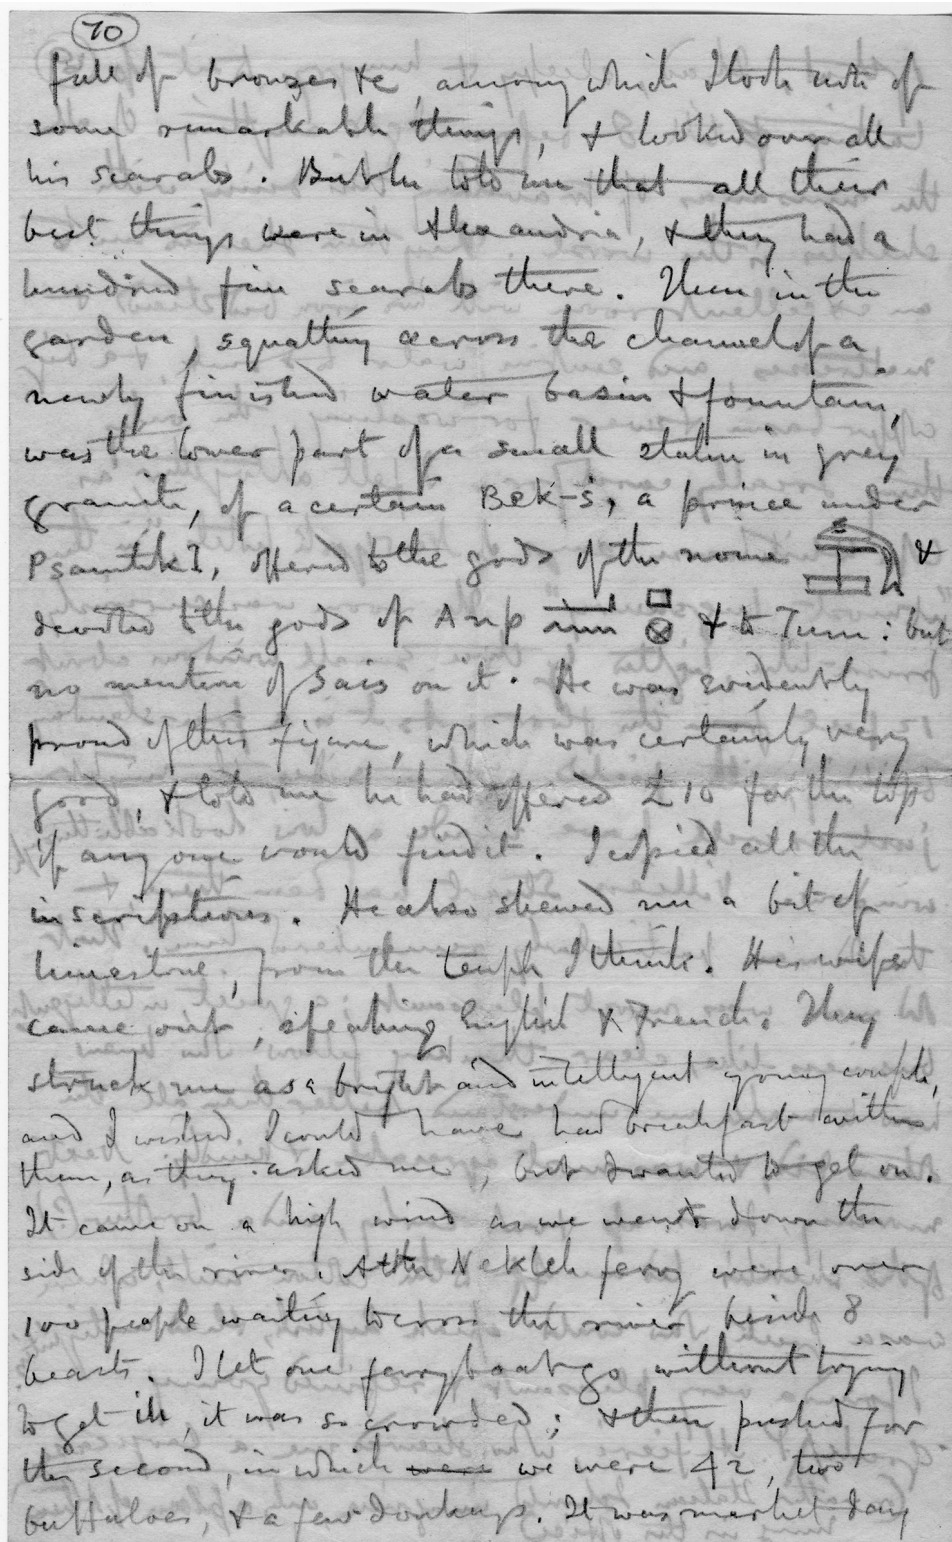 70
full of bronzes &c, among which I took note of
some remarkable things, & looked over all
his scarabs. But he told me that all their
best things were in Alexandria, & they had a
hundred fine scarabs there. Then in the
garden, squatting across the channel of a
newly finished water basin & fountain,
was the lower part of a small statue in grey
granite, of a certain Bek-s, a prince under
Psamtik I, offered to the gods of the nome &
devoted to the gods of Anp & to Tum: but
no mention of Sais on it. He was evidently
proud of this figure, which was certainly very
good, & told me he had offered £10 for the top
if any one would find it. I copied all the
inscriptions. He also shewed me a bit of
limestone, from the temple I think. His wife
came out, speaking English & French. They
struck me as a bright and intelligent young couple,
and I wished I could have had breakfast with
them, as they asked me, but I wanted to get on.
It came on a high wind as we went down the
side of the river. At the Nekleh ferry were over
100 people waiting to cross the river beside 8
beasts. I let one ferryboat go without trying
to get in, it was so crowded; & then pushed for
the second, in which were we were 42, two
buffaloes, & a few donkeys. It was market day